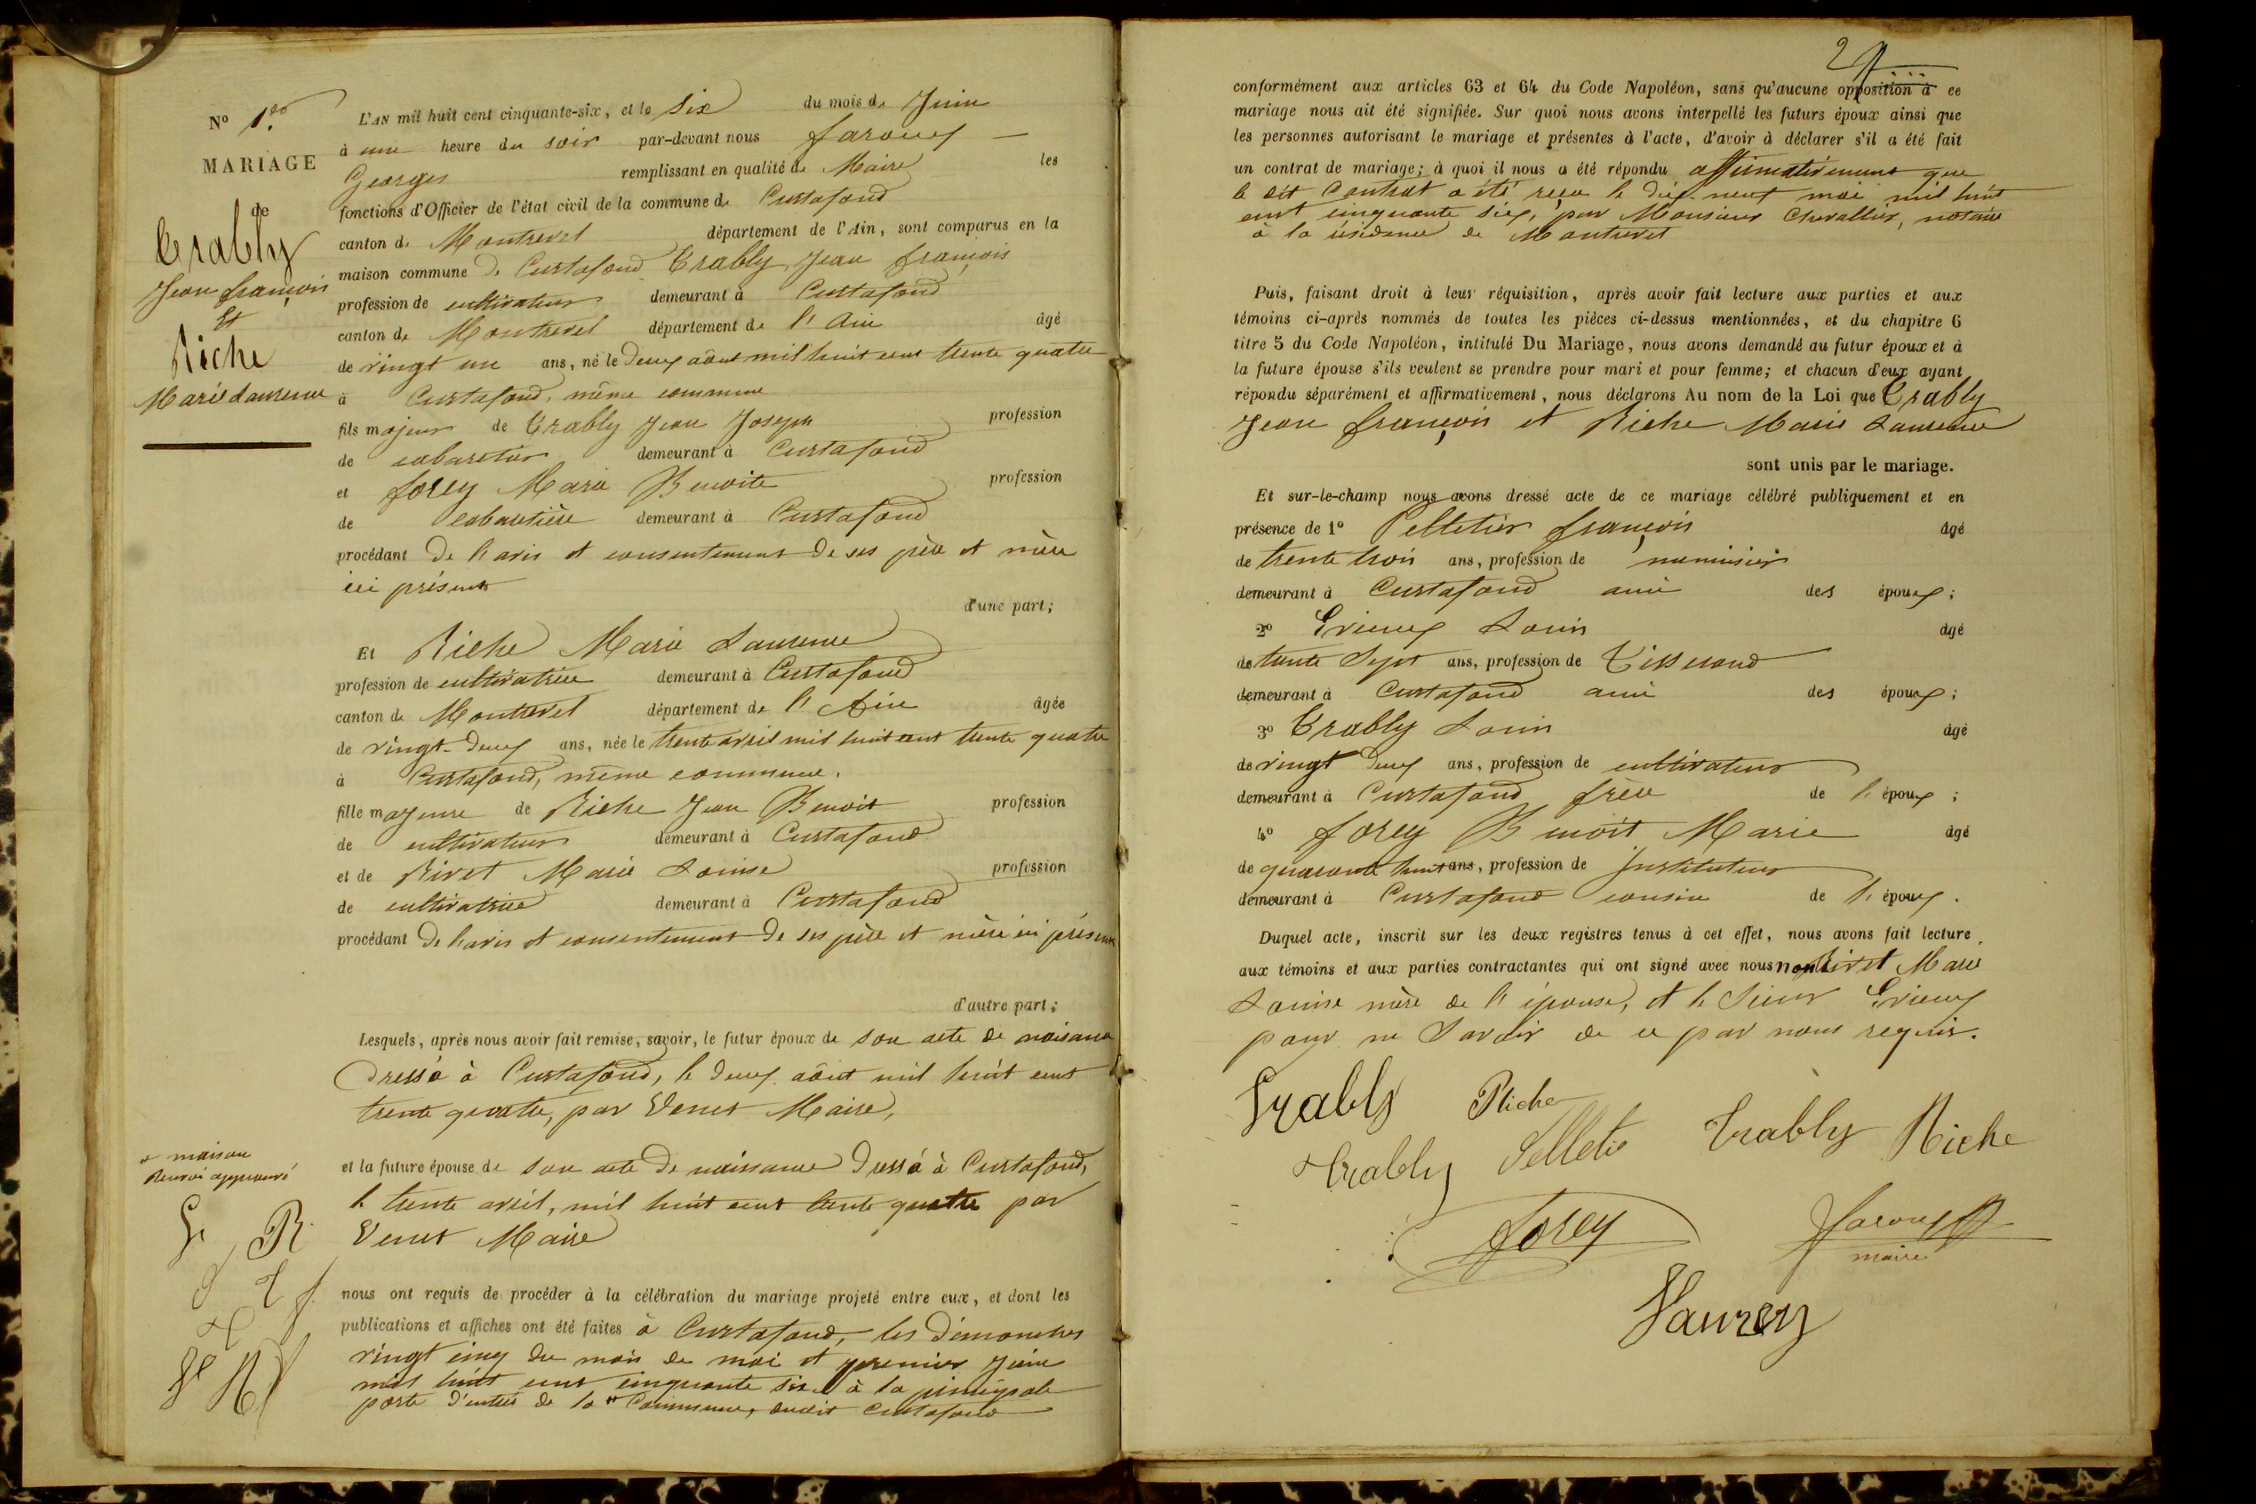 N° 1.er
MARIAGE
de
Trably
Jean françois
Et
Riche
Marie Laurence
L'AN mil huit cent cinquante-six, et le Six du mois de Juin
à une heure du soir par-devant nous Faroux
Georges remplissant en qualité de Maire les
fonctions d'Officier de l'état civil de la commune de Curtafond
canton de Montrevel département de l'Ain, sont comparus en la
maison commune de Curtafond Trably Jean françois
profession de cultivateur demeurant à Curtafond
canton de Montrevel département de l'Ain âgé
de vingt un ans, né le deux aôut mil huit cent trente quatre
à Curtafond, même commune
fils majeur de Trably Jean Joseph profession
de cabaretier demeurant à Curtafond
et forey Marie Benoite profession
de cabaretière demeurant à Curtafond
procédant de l'avis et consentement de ses père et mère
ici présents
d'une part;
Et Riche Marie Laurence
profession de cultivatrice demeurant à Curtafond
canton de Montrevel département de l'Ain âgée
de vingt-deux ans, née le trente avril mil huit cent trente quatre
à Curtafond, même commune.
fille majeure de Riche Jean Benoit profession
de cultivateur demeurant à Curtafond
et de Rivet Marie Louise profession
de cultivatrice demeurant à Curtafond
procédant de l'avis et consentement de ses père et mère ici présents
d'autre part;
Lesquels, après nous avoir fait remise, savoir, le futur époux de son acte de naissance
dressé à Curtafond, le deux aôut mil huit cent
trente quatre, par Venet Maire,
et la future épouse de son acte de naissance dressé à Curtafond,
le trente avril, mil huit cent trente quatre par
Venet Maire
maison
Renvoi approuvé
nous ont requis de procéder à la célébration du mariage projeté entre eux, et dont les
publications et affiches ont été faites à Curtafond, les dimanches
vingt cinq du mois de mai et premier Juin
mil huit cent cinquante six à la principale
porte d'entrée de la Commune, audit Curtafond
conformément aux articles 63 et 64 du Code Napoléon, sans qu'aucune opposition à ce
mariage nous ait été signifiée. Sur quoi nous avons interpellé les futurs époux ainsi que
les personnes autorisant le mariage et présentes à l'acte, d'avoir à déclarer s'il a été fait
un contrat de mariage; à quoi il nous a été répondu affirmativement que
le dit contrat a été reçu le dix neuf mai mil huit
cent cinquante six, par Monsieur Chevallier, notaire
à la résidence de Montrevel
Puis, faisant droit à leur réquisition, après avoir fait lecture aux parties et aux
témoins ci-après nommés de toutes les pièces ci-dessus mentionnées, et du chapitre 6
titre 5 du Code Napoléon, intitulé Du Mariage, nous avons demandé au futur époux et à
la future épouse s'ils veulent se prendre pour mari et pour femme; et chacun d'eux ayant
répondu séparément et affirmativement, nous déclarons Au nom de la Loi que Trably
Jean françois et Riche Marie Laurence
sont unis par le mariage.
Et sur-le-champ nous avons dressé acte de ce mariage célébré publiquement et en
présence de 1° Pelletier françois âgé
de trente trois ans, profession de menuisier
demeurant à Curtafond ami des époux;
2° Erieux Louis âgé
de trente Sept ans, profession de Tisserand
demeurant à Curtafond ami des époux;
3° Trably Louis âgé
de vingt deux ans, profession de cultivateur
demeurant à Curtafond frère de l'époux;
4° forey Benoit Marie âgé
de quarante huit ans, profession de Instituteur
demeurant à Curtafond cousin de l'époux.
Duquel acte, inscrit sur les deux registres tenus à cet effet, nous avons fait lecture
aux témoins et aux parties contractantes qui ont signé avec nous non Rivet Marie
Louise mère de l'épouse, et le Sieur Erieux
pour ne Savoir de ce par nous requis.
Trably Riche
Trably Pelletie Trably Riche
forey Faroux
maire